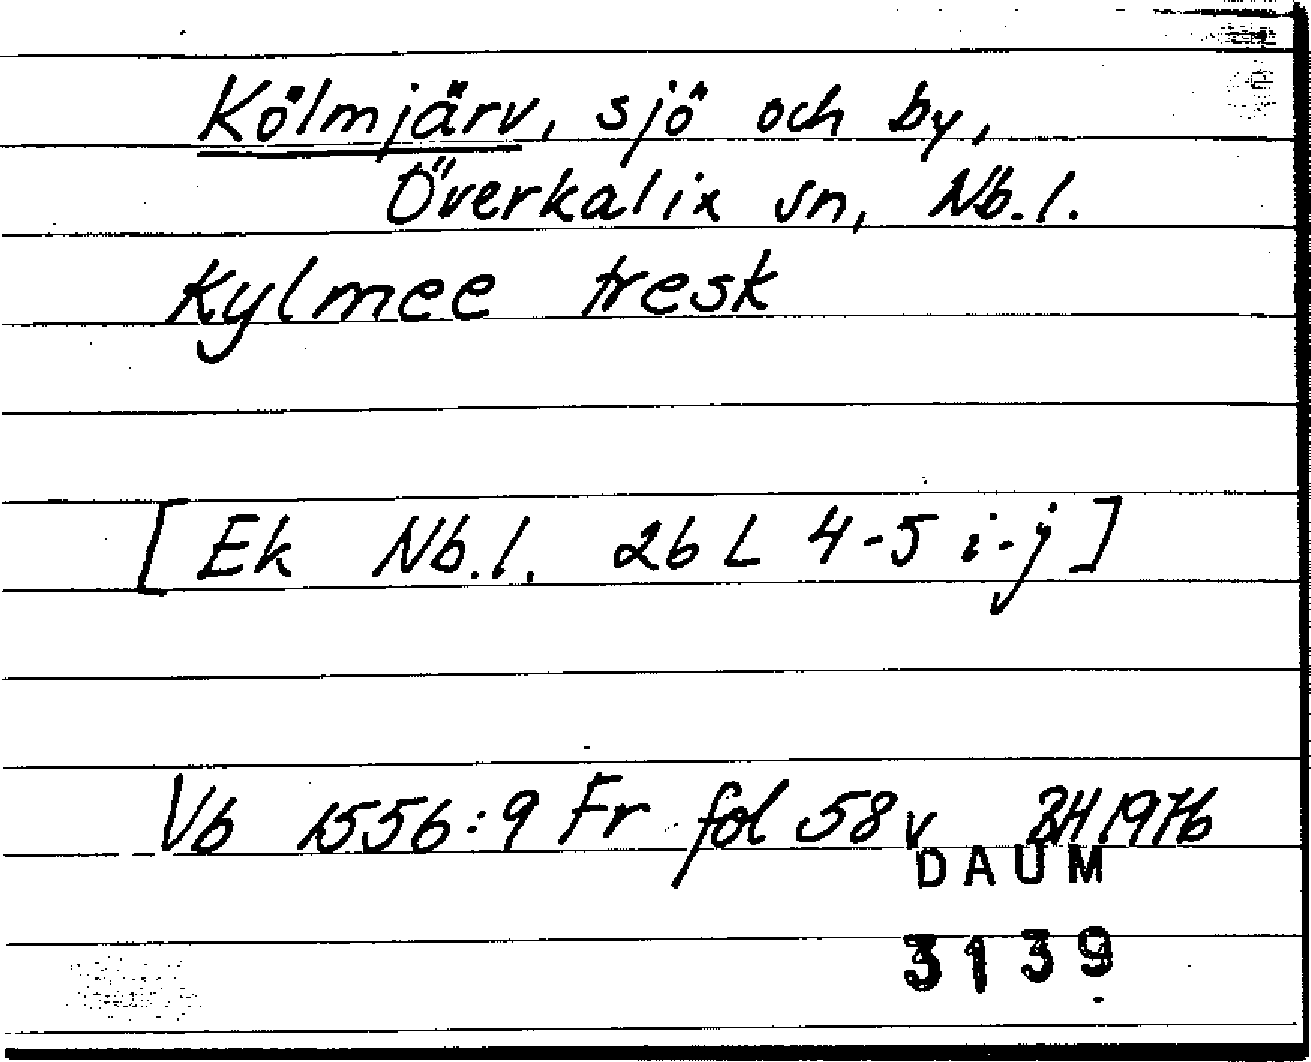 Kölmjärv, sjö och by,
Överkalix sn, Nb.l.
Kylmee tresk
[Ek Nb.l. 26 L 4-5 i-j]
Vb 1556:9 Fr fol 58 v 1976
DAUM
3139